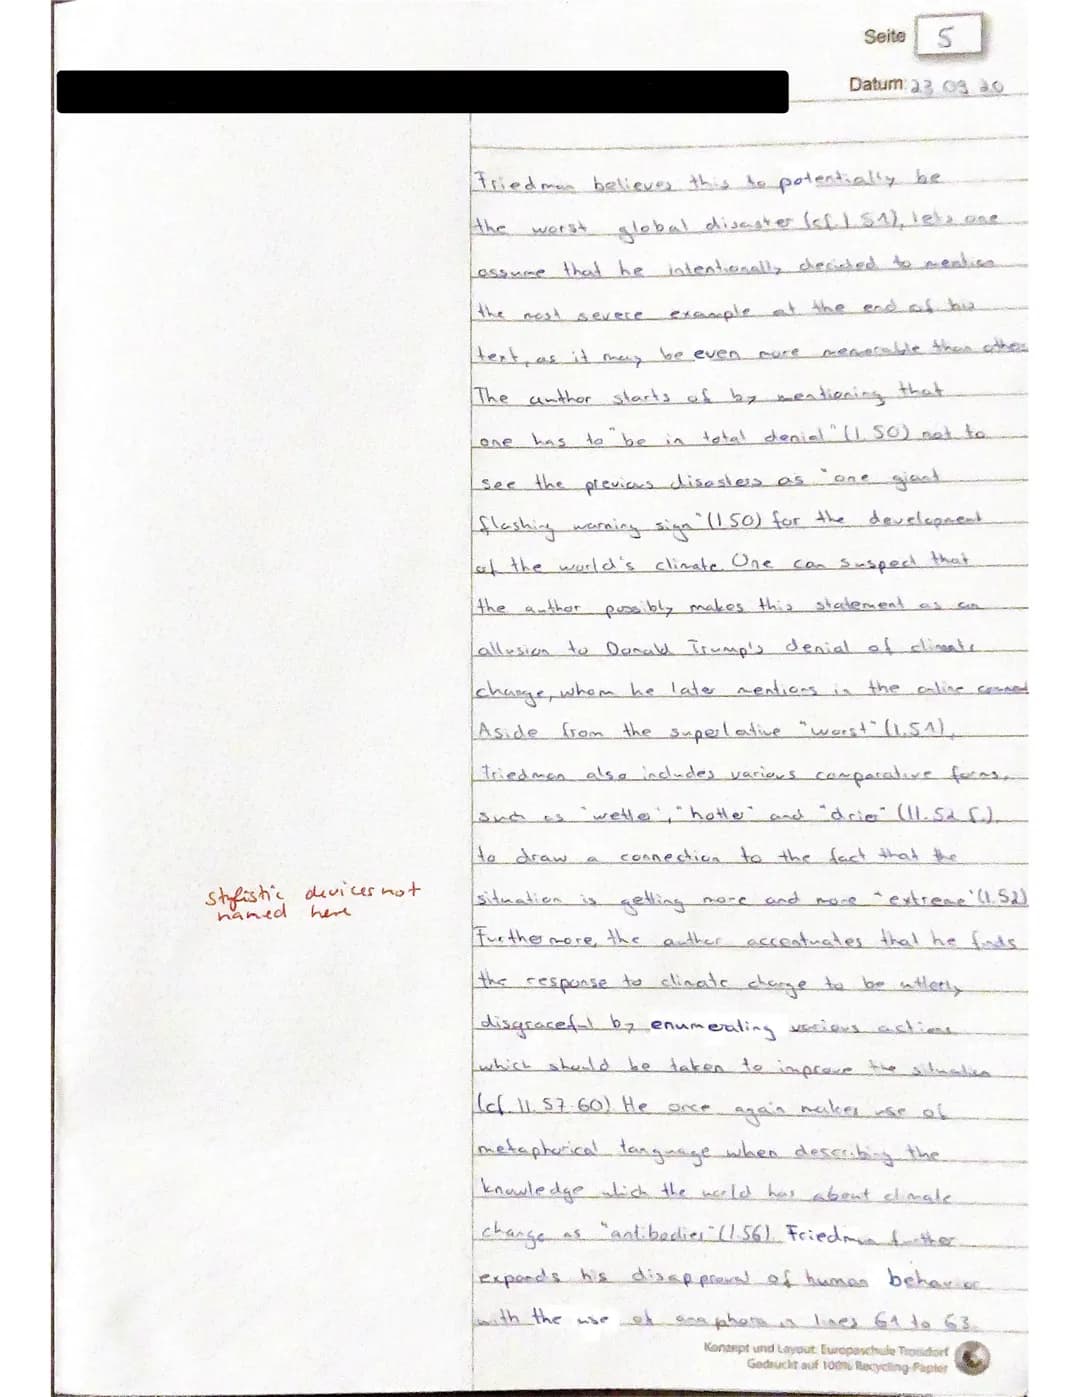 Seite 5
Datum: 23 09 20
Friedman believes this to potentially be
the worst global disaster (cf. l. 51), lets one
assume that he intentionally decided to mention
the most severe example at the end of his
text, as it may be even more memorable than other
The author starts of by mentioning that
one has to "be in total denial" (l. 50) not to
see the previous disasters as "one giant
flashing warning sign" (l 50) for the development
of the world's climate. One can suspect that
the author possibly makes this statement as an
allusion to Donald Trump's denial of climate
change, whom he later mentions in the online
Aside from the superlative "worst" (l. 51),
Friedman also includes various comparative forms,
such as "wetter", "hotter" and "drier" (ll. 52 f.),
to draw a connection to the fact that the
situation is getting more and more "extreme" (l. 52)
stylistic devices not
named here
Furthermore, the author accentuates that he finds
the response to climate change to be utterly
disgraceful by enumerating various actions
which should be taken to improve the situation
(cf. ll. 57-60). He once again makes use of
metaphorical language when describing the
knowledge which the world has about climate
change as "antibodies" (l. 56). Friedman further
expands his disapproval of human behavior
with the use of anaphora in lines 61 to 63.
Konzept und Layout: Europaschule Troisdorf
Gedruckt auf 100% Recycling-Papier